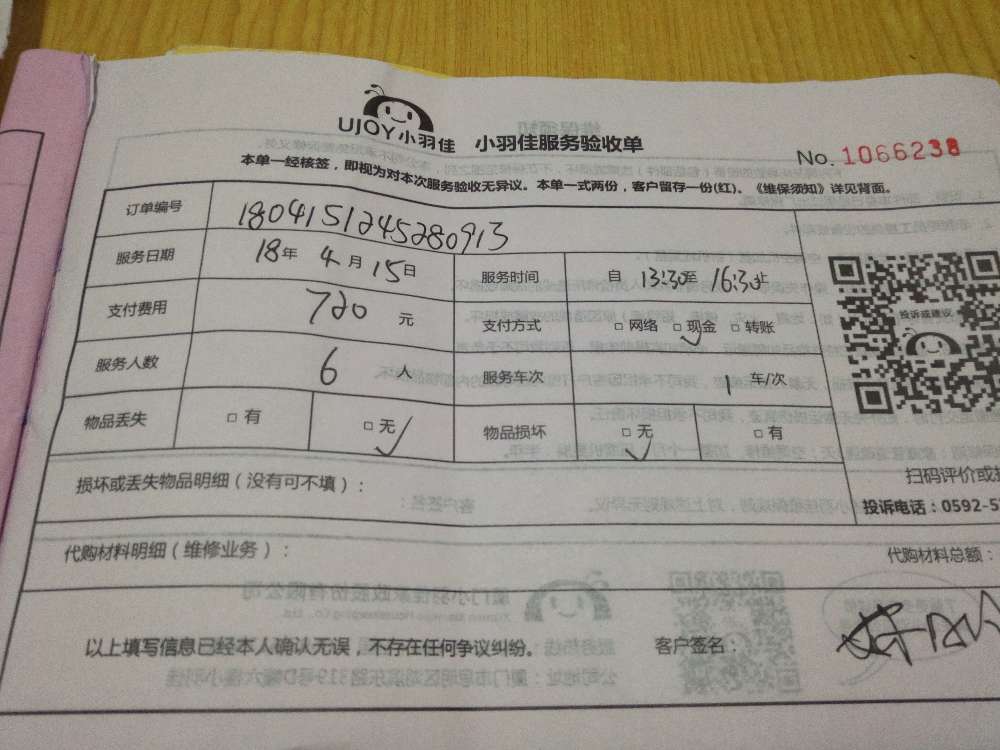 UJOY小羽佳 小羽佳服务验收单
No. 1066238
本单一经核签，即视为对本次服务验收无异议。本单一式两份，客户留存一份(红)。《维保须知》详见背面。
订单编号 1804151245280913
服务日期 18年 4月15日 服务时间 自 13:30至16:30止
支付费用 720 元 支付方式 □ 网络 □ 现金 □ 转账
服务人数 6 人 服务车次 1 车/次
物品丢失 □ 有 □ 无 物品损坏 □ 无 □ 有
投诉或建议
扫码评价或
损坏或丢失物品明细（没有可不填）：
投诉电话：0592-5
代购材料明细（维修业务）： 代购材料总额：
以上填写信息已经本人确认无误，不存在任何争议纠纷。 客户签名：